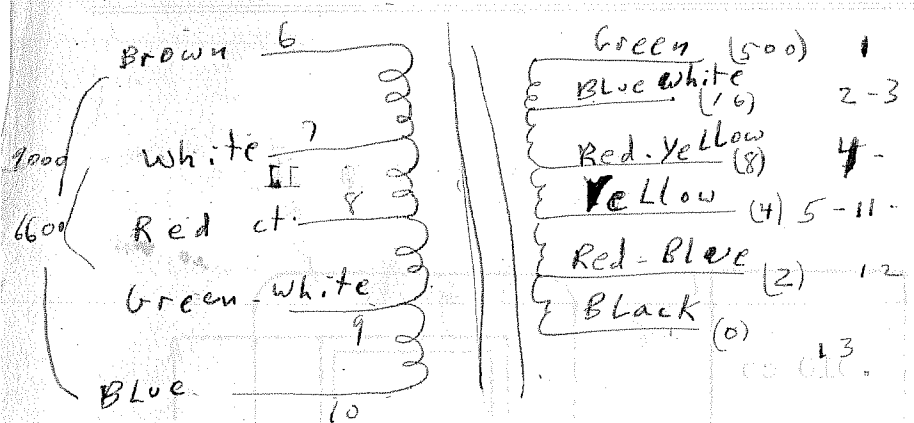 Brown 6
White 7
II
Red ct. 8
Green-White
9
BLue
10
9000
6600
Green (500) 1
BLue White (16) 2-3
Red-YeLLow (8) 4-
YeLLow (4) 5-11-
Red-BLue (2) 12
BLack (0)
13.